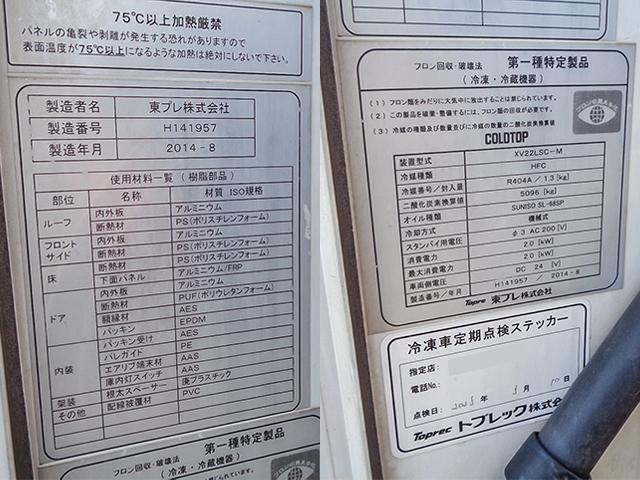 75℃以上加熱厳禁
パネルの亀裂や剥離が発生する恐れがありますので
表面温度が75℃以上になるような加熱は絶対にしないで下さい。
製造者名 東プレ株式会社
製造番号 H141957
製造年月 2014-8
使用材料一覧 (樹脂部品)
部位 名称 材質 ISO規格
ルーフ 内外板 アルミニウム
断熱材 PS(ポリスチレンフォーム)
フロント サイド 内外板 アルミニウム
断熱材 PS(ポリスチレンフォーム)
床 断熱材 PS(ポリスチレンフォーム)
下面パネル アルミニウム/FRP
ドア 内外板 アルミニウム
断熱材 PUF(ポリウレタンフォーム)
額縁材 AES
パッキン EPDM
パッキン受け AES
内装 バレガイド PE
エアリブ端末材 AAS
庫内灯スイッチ AAS
架装 根太スペーサー 廃プラスチック
その他 配線被覆材 PVC
フロン回収・破壊法 第一種特定製品
(冷凍・冷蔵機器)
フロン回収・破壊法 第一種特定製品
(冷凍・冷蔵機器)
(1) フロン類をみだりに大気中に放出することは禁じられています。
(2) この製品を廃棄・整備するには、フロン類の回収が必要です。
(3) 冷媒の種類及び数量並びに冷媒の数量の二酸化炭素換算値
COLDTOP
装置型式 XV22LSC-M
冷媒種類 HFC
冷媒番号/封入量 R404A / 1.3[kg]
二酸化炭素換算値 5096 [kg]
オイル種類 SUNISO SL-68SP
冷却方式 機械式
スタンバイ用電圧 φ3 AC 200[V]
消費電力 2.0 [kW]
最大消費電力 2.0 [kW]
車両側電圧 DC 24 [V]
製造番号/年月 H141957 / 2014-8
Topre 東プレ株式会社
冷凍車定期点検ステッカー
指定店:
電話No.:
点検日: 年 月 日
Toprec トプレック株式会社